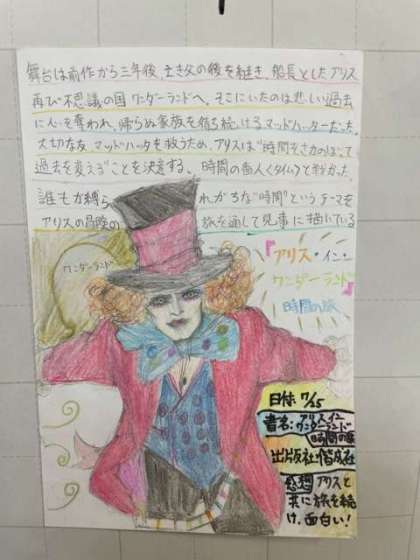 舞台は前作から三年後、亡き父の後を継ぎ、船長としたアリス
再び不思議の国ワンダーランドへ。そこにいたのは悲しい過去
に心を奪われ、帰らぬ家族を待ち続けるマッドハッターだった。
大切な友マッドハッタを救うため、アリスは"時間をさかのぼって
過去を変えることを決意する、時間の番人(タイム)と
誰もが縛られがちな"時間"というテーマを
アリスの冒険の旅を通して見事に描いている
ワンダーランド
『アリス・イン・
ワンダーランド』
時間の旅
日付 7/25
書名:アリスイン
ワンダーランド
時間の旅
出版社:偕成社
感想 アリスと
共に旅を続
け、面白い!